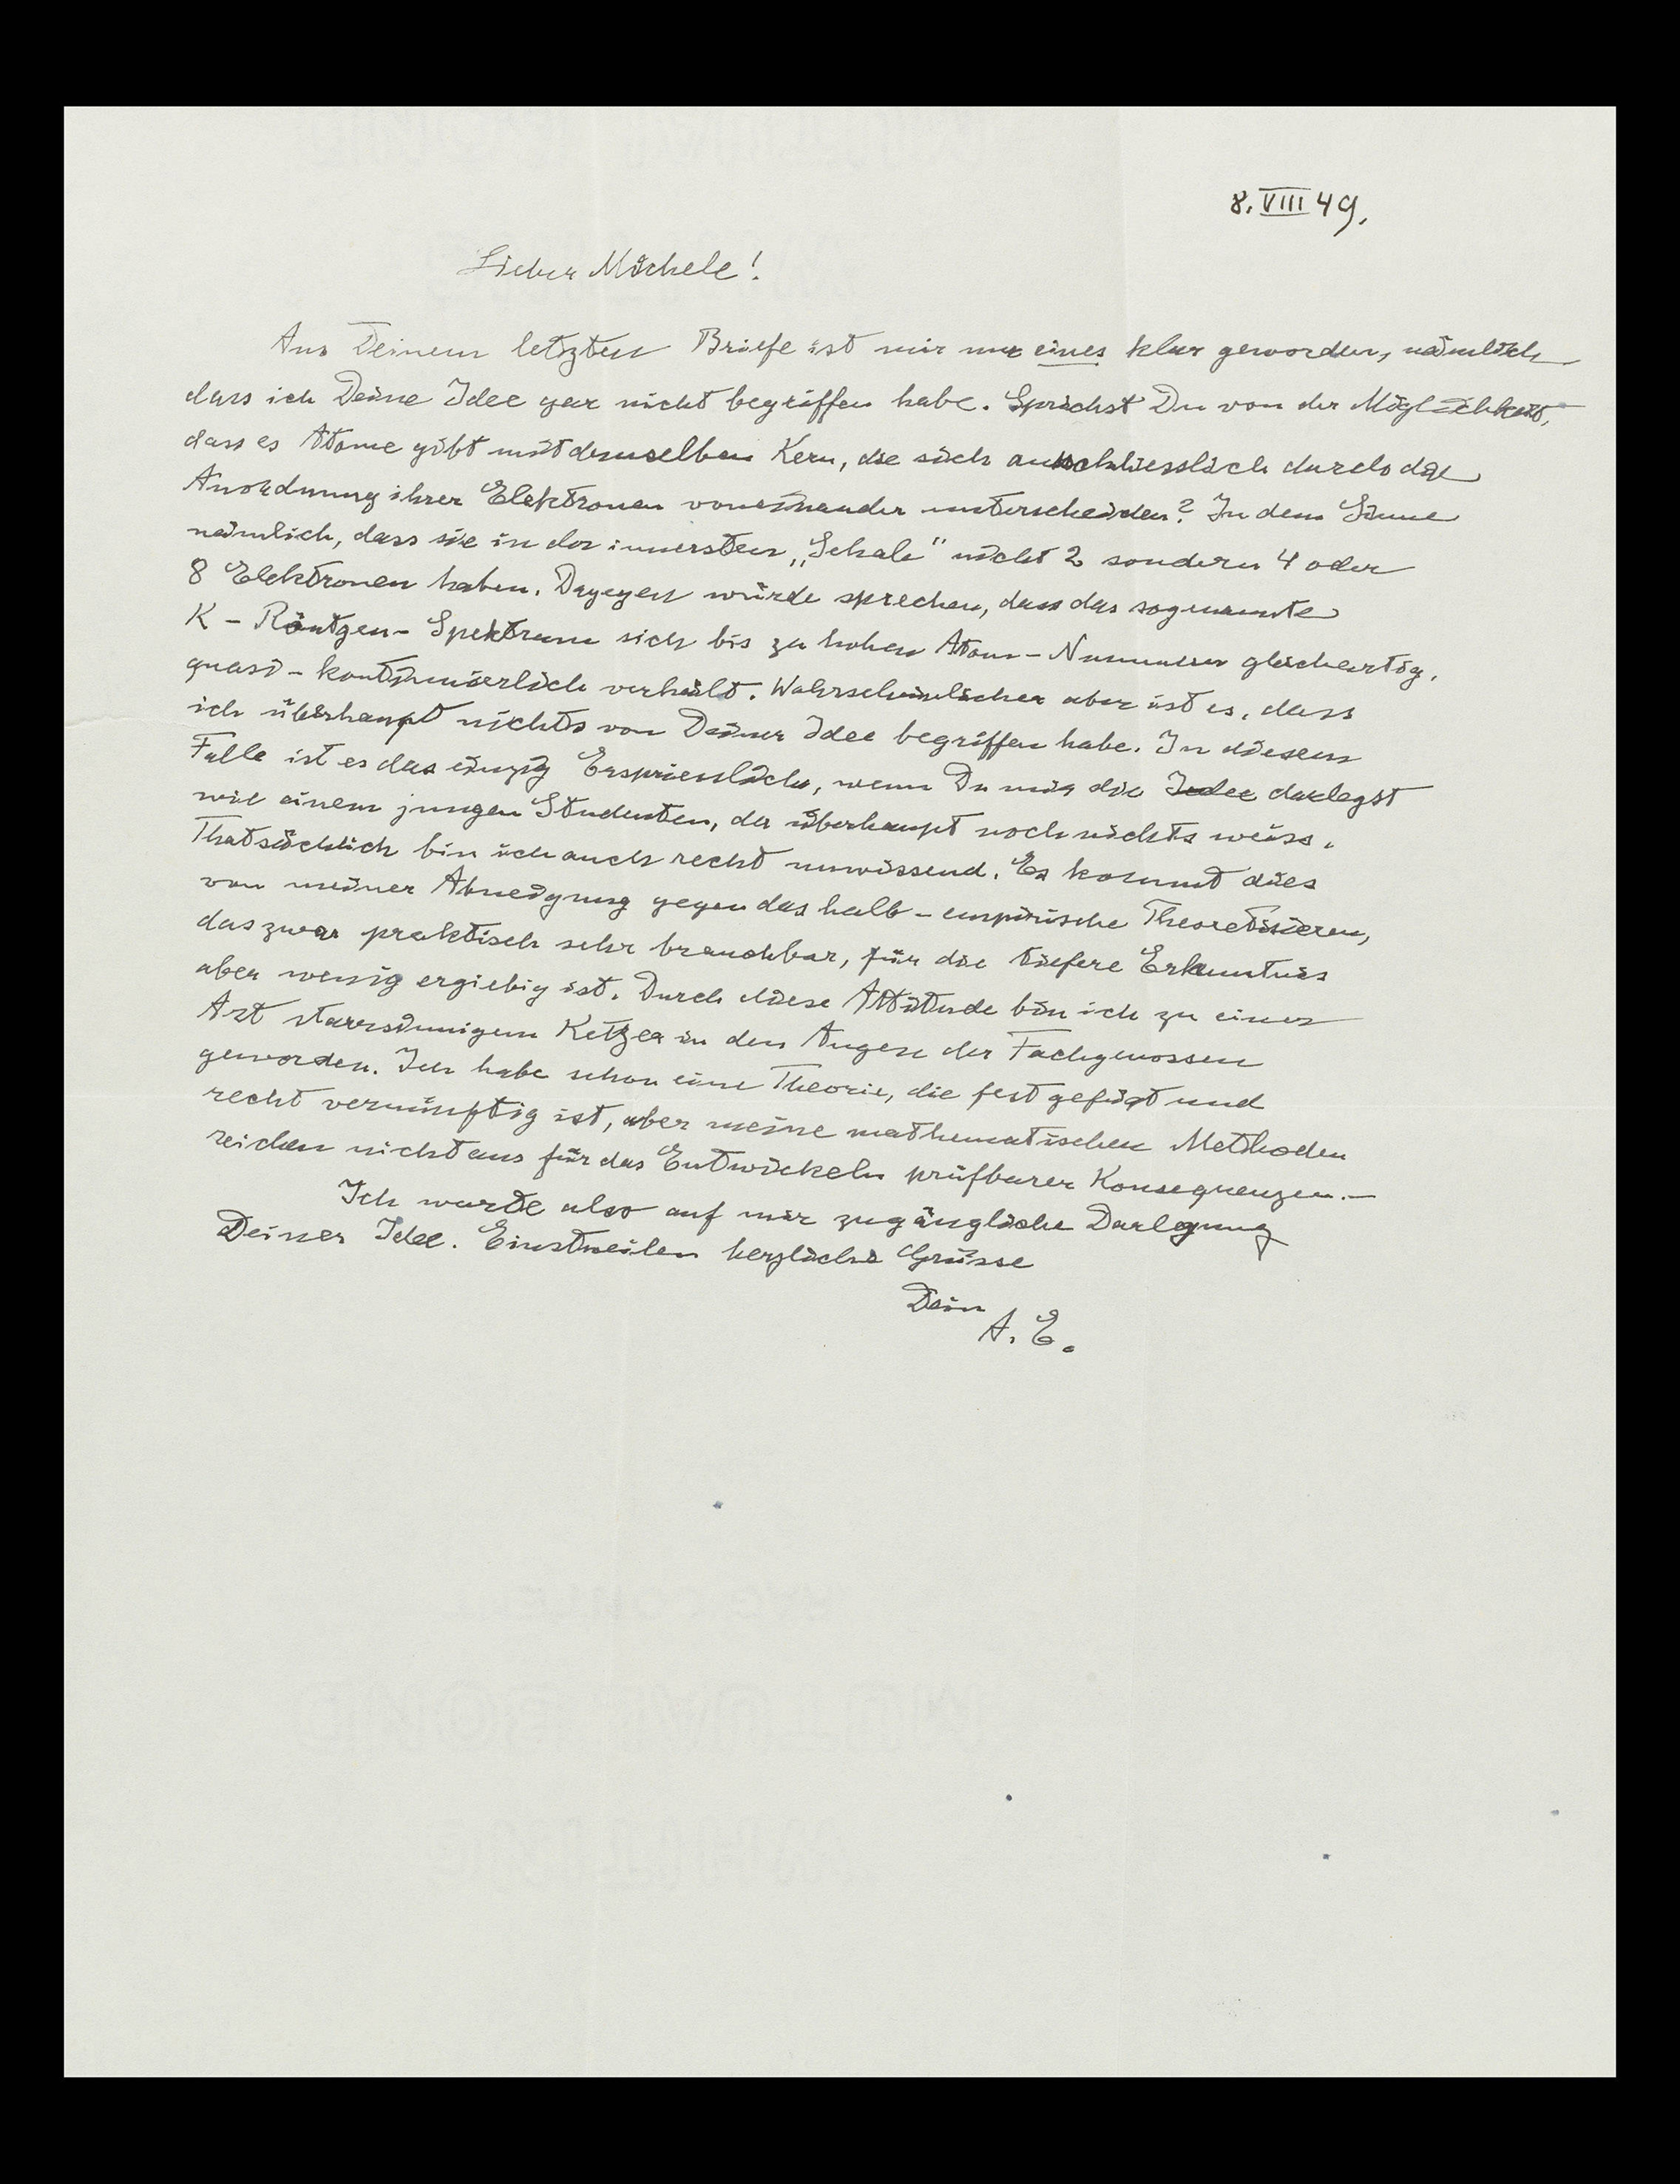 8. VIII 49.
Lieber Michele!
Aus Deinem letzten Briefe ist mir nur eines klar geworden, nämlich
dass ich Deine Idee gar nicht begriffen habe. Sprichst Du von der Möglichkeit,
dass es Atome gibt mit demselben Kern, die sich ausschliesslich durch die
Anordnung ihrer Elektronen voneinander unterscheiden? In dem Sinne
nämlich, dass sie in der innersten „Schale" nicht 2 sondern 4 oder
8 Elektronen haben. Dagegen würde sprechen, dass das sogenannte
K-Röntgen-Spektrum sich bis zu hohen Atom-Nummern gleichartig,
quasi-kontinuierlich verhält. Wahrscheinlicher aber ist es, dass
ich überhaupt nichts von Deiner Idee begriffen habe. In diesem
Falle ist es das einzig Erspriessliche, wenn Du mir die Idee darlegst
wie einem jungen Studenten, der überhaupt noch nichts weiss.
Thatsächlich bin ich auch recht unwissend. Es kommt dies
von meiner Abneigung gegen das halb-empirische Theoretisieren,
das zwar praktisch sehr brauchbar, für die tiefere Erkenntnis
aber wenig ergiebig ist. Durch diese Attitude bin ich zu einer
Art starrsinnigem Ketzer in den Augen der Fachgenossen
geworden. Ich habe schon eine Theorie, die fest gefügt und
recht vernünftig ist, aber meine mathematischen Methoden
reichen nicht aus für das Entwickeln prüfbarer Konsequenzen.—
Ich warte also auf mir zugängliche Darlegung
Deiner Idee. Einstweilen herzliche Grüsse
Dein
A. E.